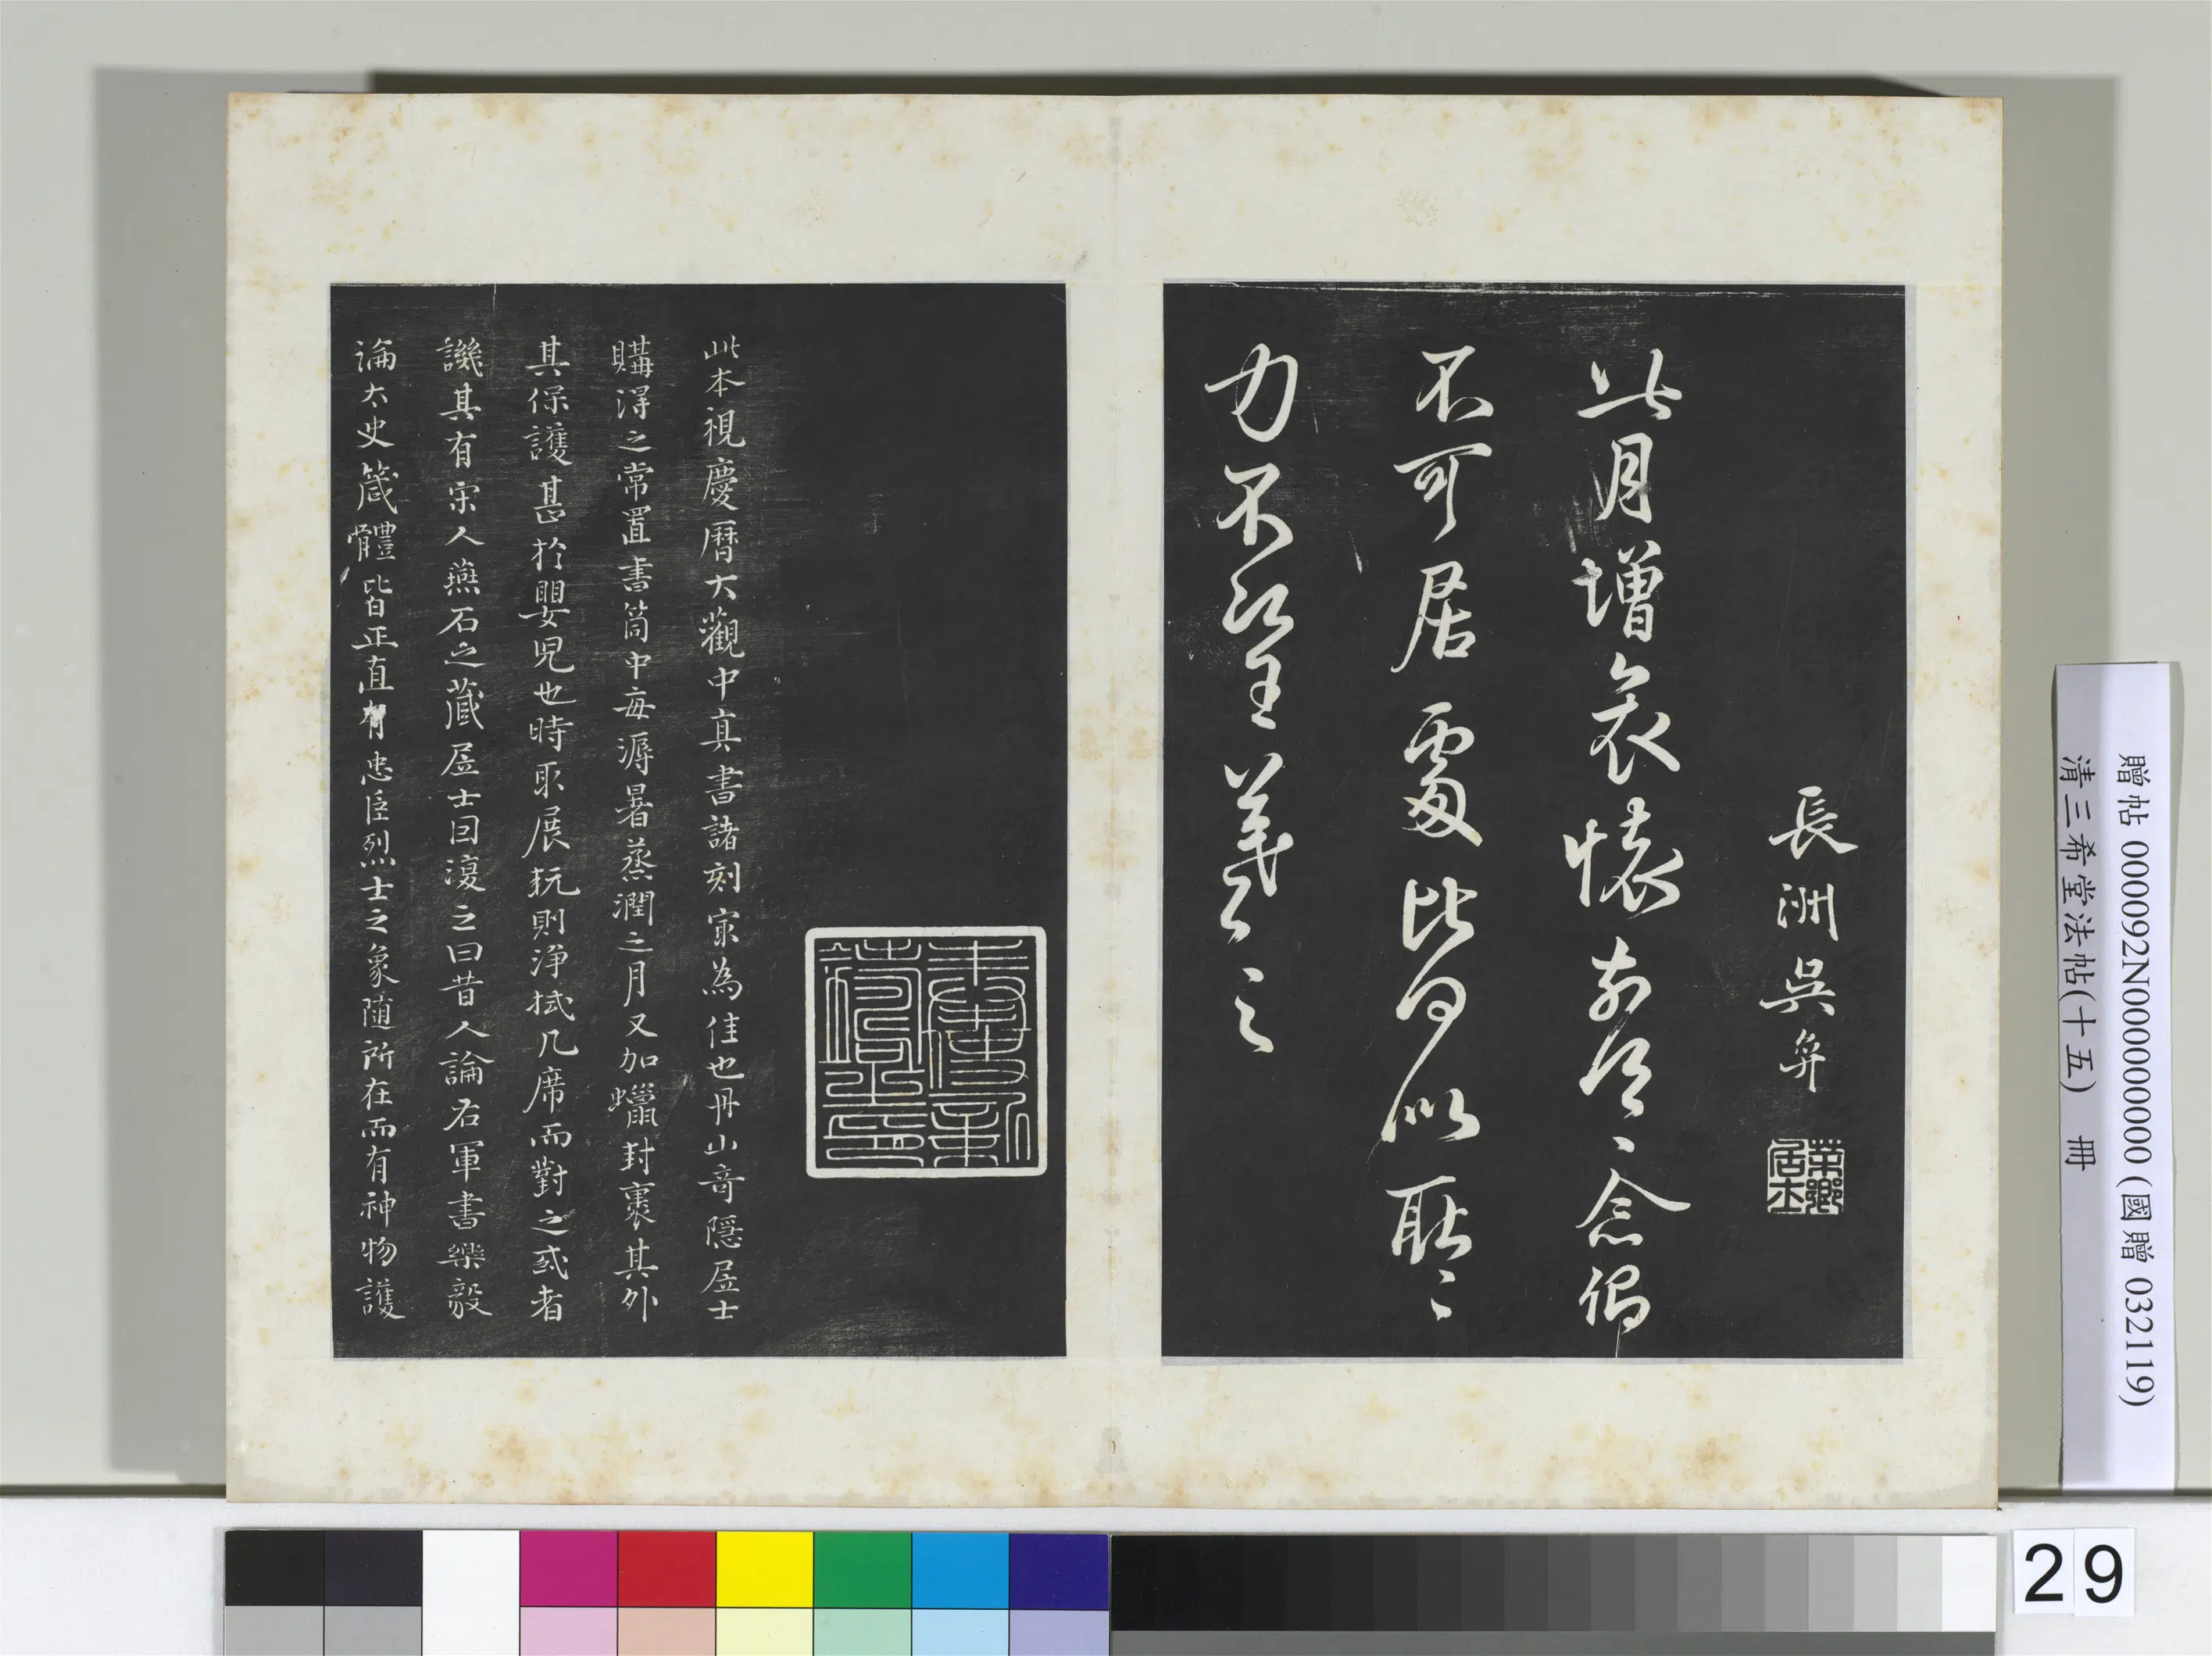 長洲吳弈
此月增哀懷前念〻念傷
不可居處比何似耿〻
力不次王羲之
此本視慶曆大觀中真書諸刻宲為佳也丹山音隱居士
購得之常置書筒中每溽暑蒸潤之月又加蠟封裹其外
其保護甚於嬰児也時取展玩則淨拭几席而對之或者
譏其有宋人燕石之藏居士因復之曰昔人論右軍書樂毅
論太史箴體皆正直有忠臣烈士之象隨所在而有神物護
贈帖 000092N000000000 (國贈 032119)
清三希堂法帖(十五) 冊
29